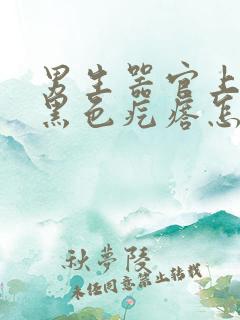 男生器官上
黑色疙瘩怎
秋夢陵
未经同意禁止转载